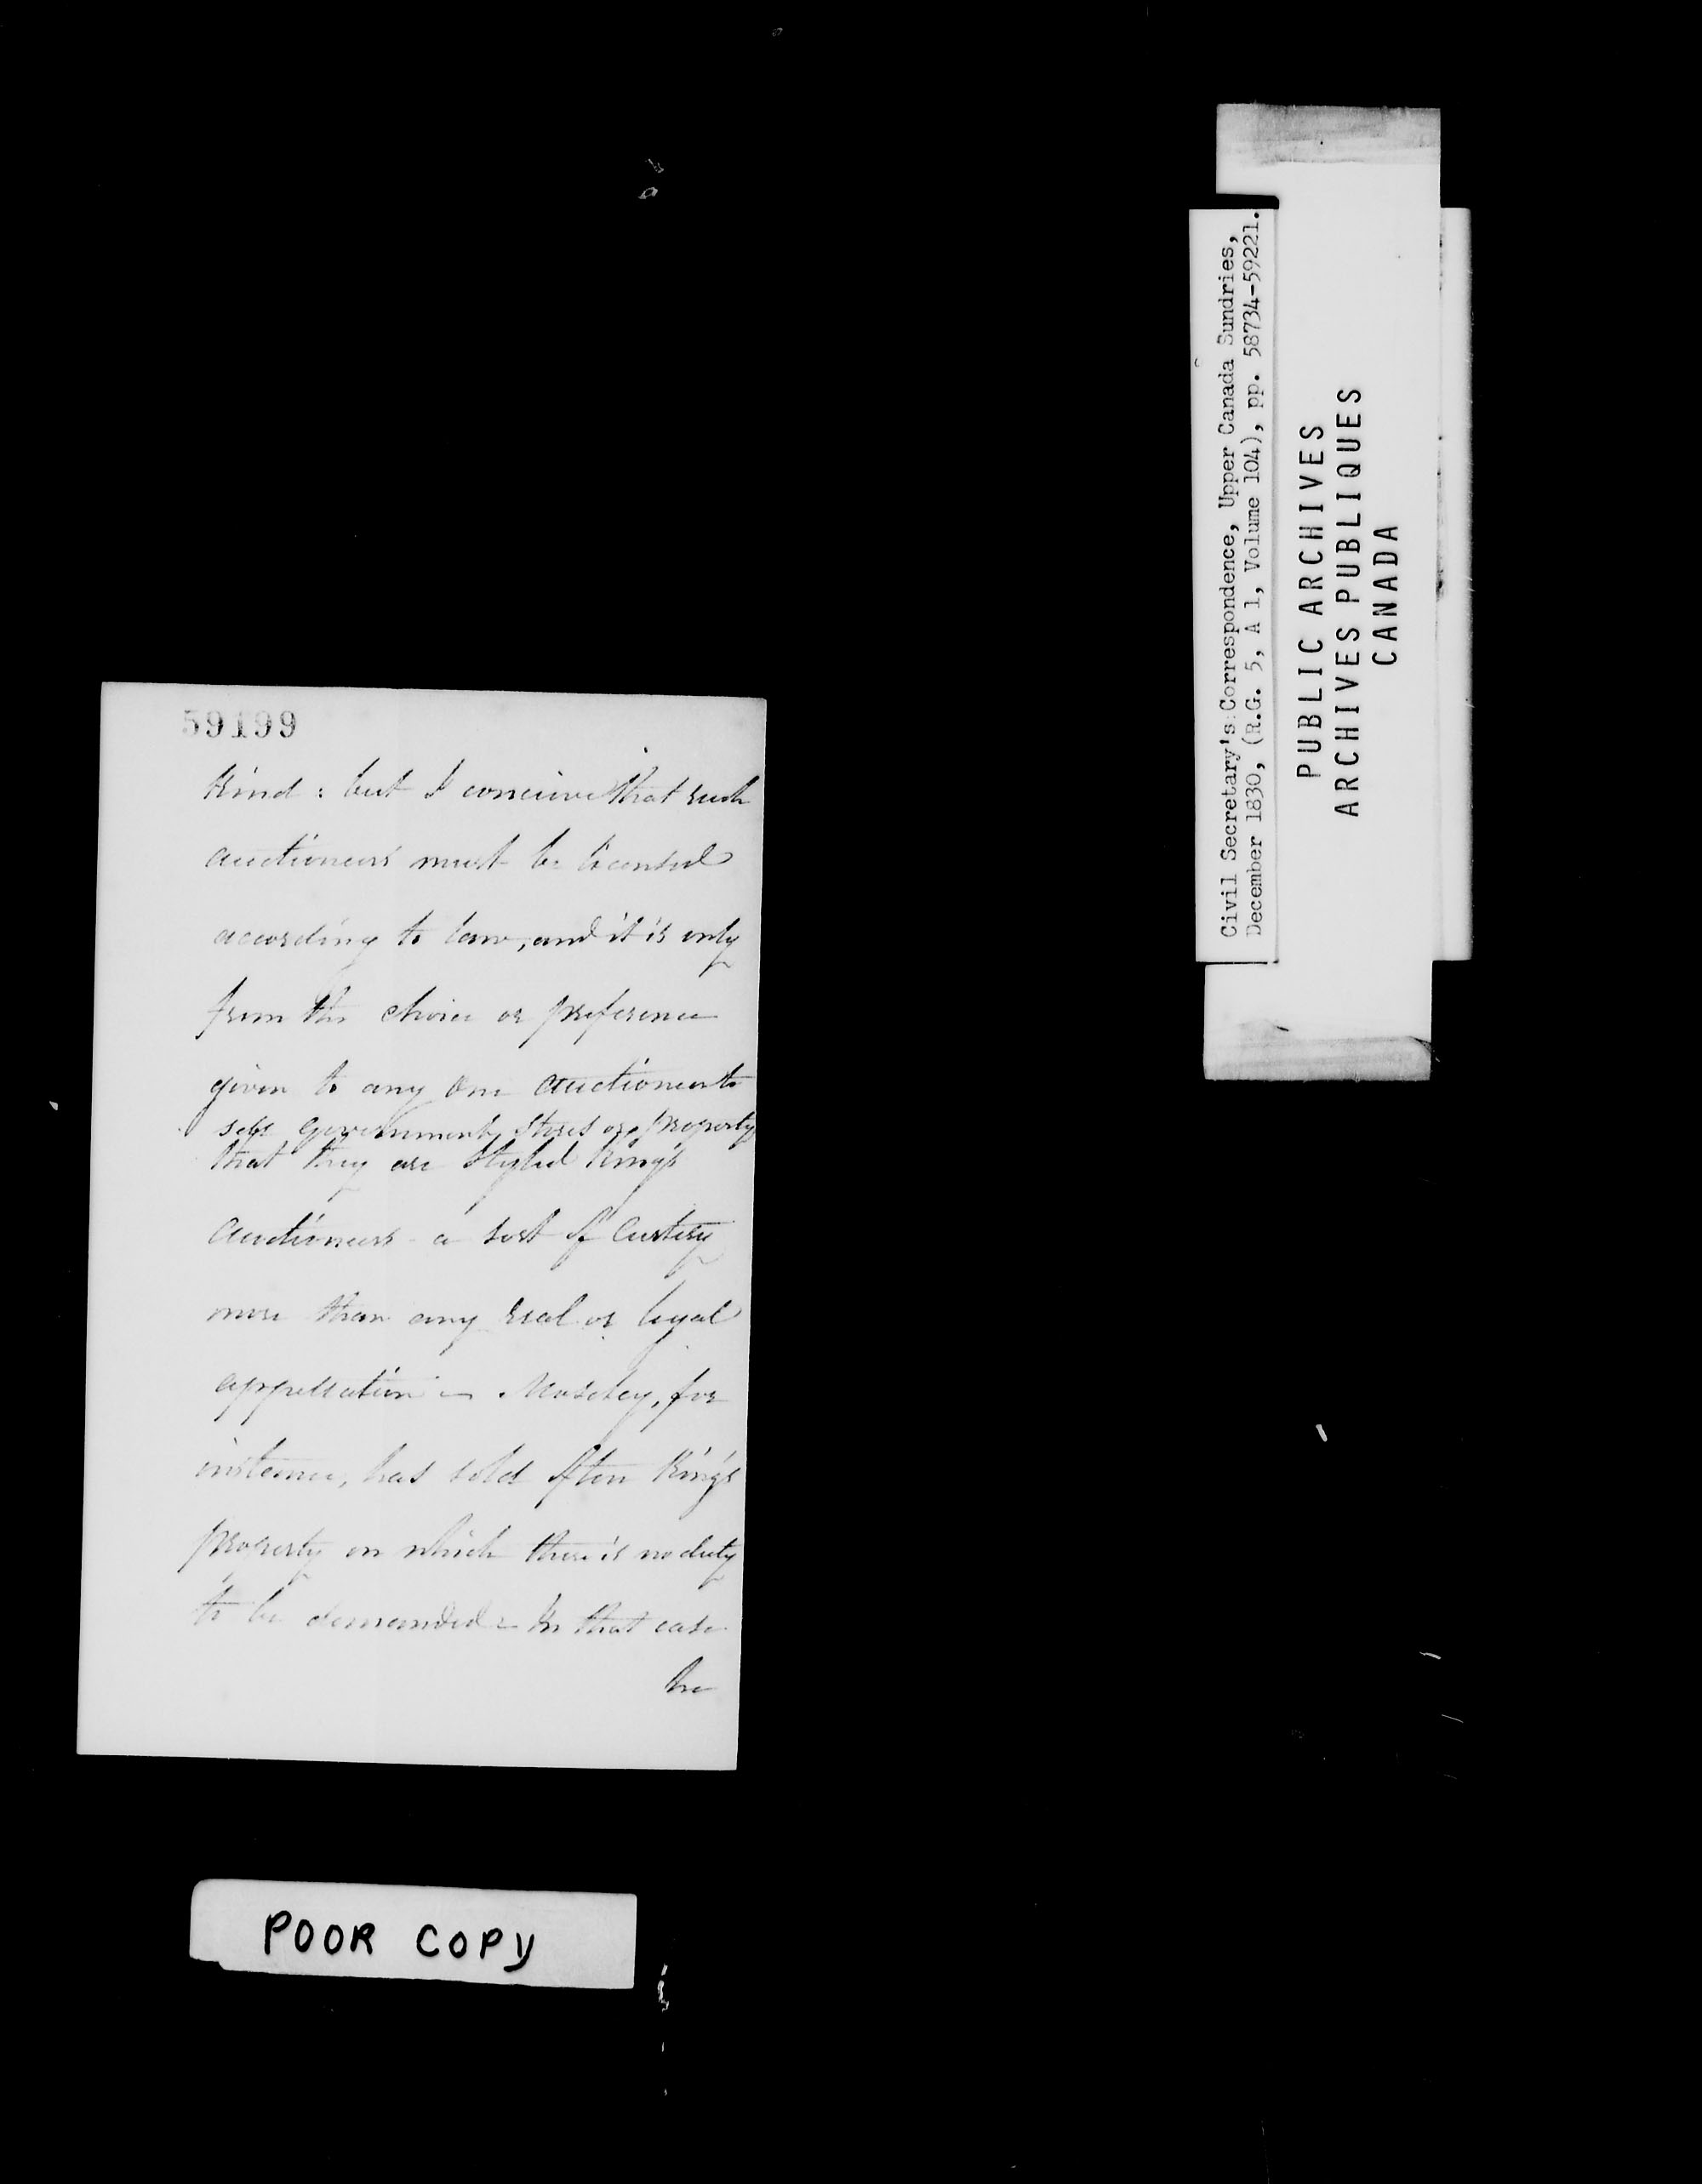 59199
kind : but I conceive that such
auctioneers must be licensed
according to law, and it is only
from the choice or preference
given to any one auctioneer to
sell Government Stores or property
that they are styled King's
Auctioneers - a sort of Curtesy
more than any real or legal
appellation - Moseley, for
instance, has sold often King's
property on which there is no duty
to be demanded - In that case
he
POOR COPY
Civil Secretary's Correspondence, Upper Canada Sundries,
December 1830, (R.G. 5, A 1, Volume 104), pp. 58734-59221.
PUBLIC ARCHIVES
ARCHIVES PUBLIQUES
CANADA